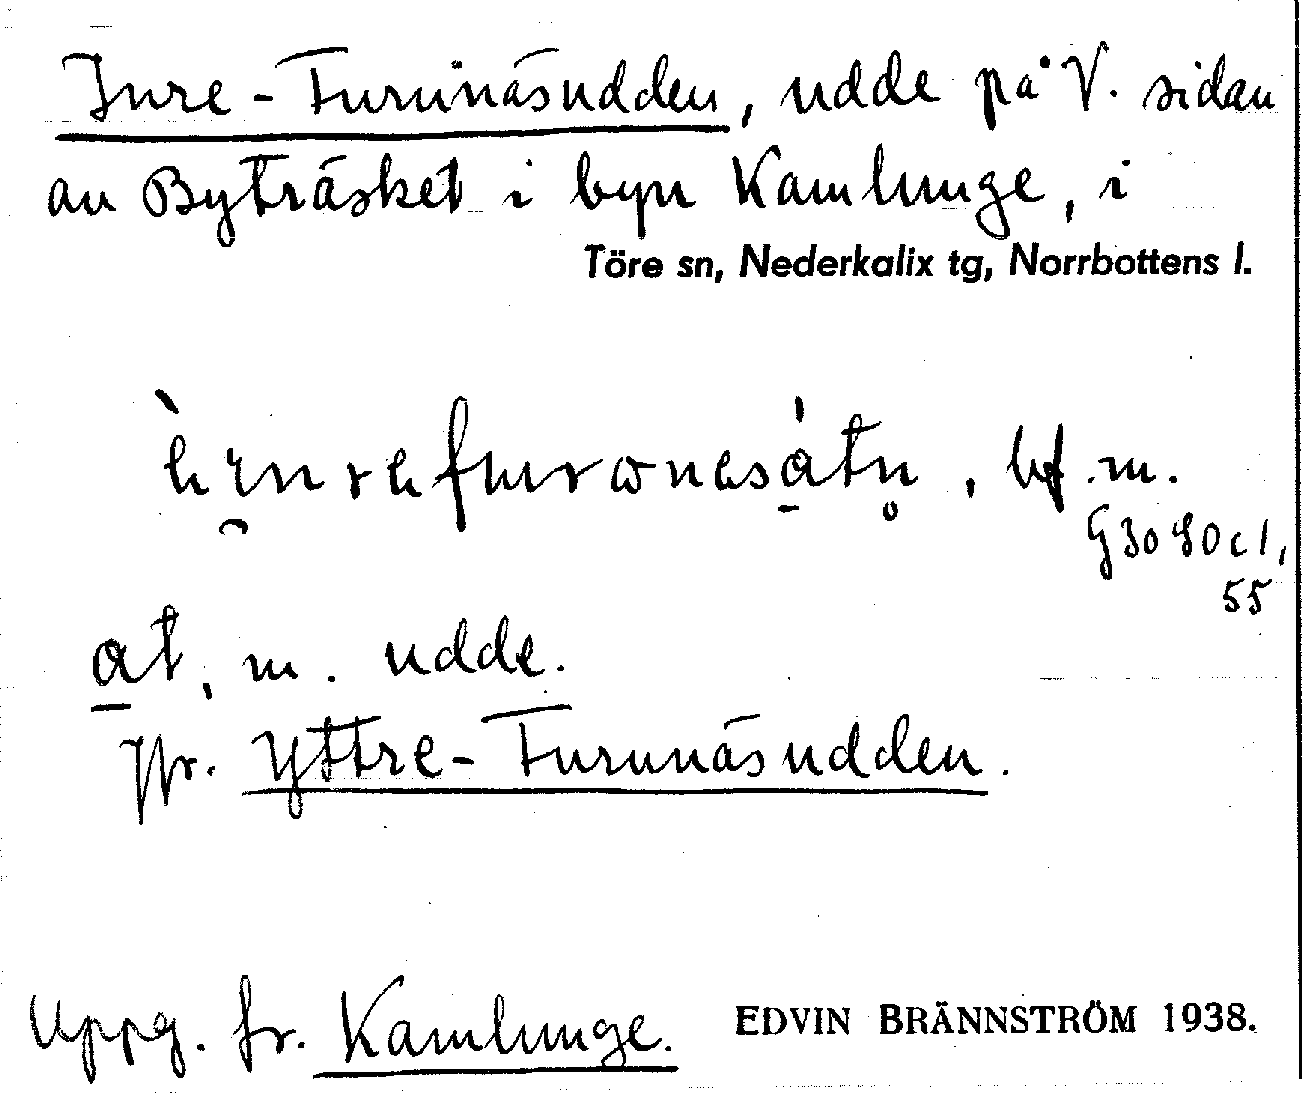 Inre-Furunäsudden, udde på V. sidan
av Byträsket i byn Kamlunge, i
Töre sn, Nederkalix tg, Norrbottens l.
, bf. m.
55
at, m. udde.
Jfr. Yttre-Furunäsudden.
Uppg. fr. Kamlunge. EDVIN BRÄNNSTRÖM 1938.